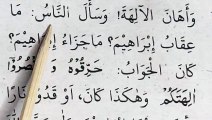 وَأَهَانَ الْآلِهَةَ! وَسَأَلَ النَّاسُ: مَا
عِقَابُ إِبْرَاهِيْمَ؟ مَا جَزَاءُ إِبْرَاهِيْمَ؟
كَانَ الْجَوَابُ: حَرِّقُوْهُ وَانْصُرُوْا
آلِهَتَكُمْ وَهٰكَذَا كَانَ، أَوْ قَدُوْا نَارًا